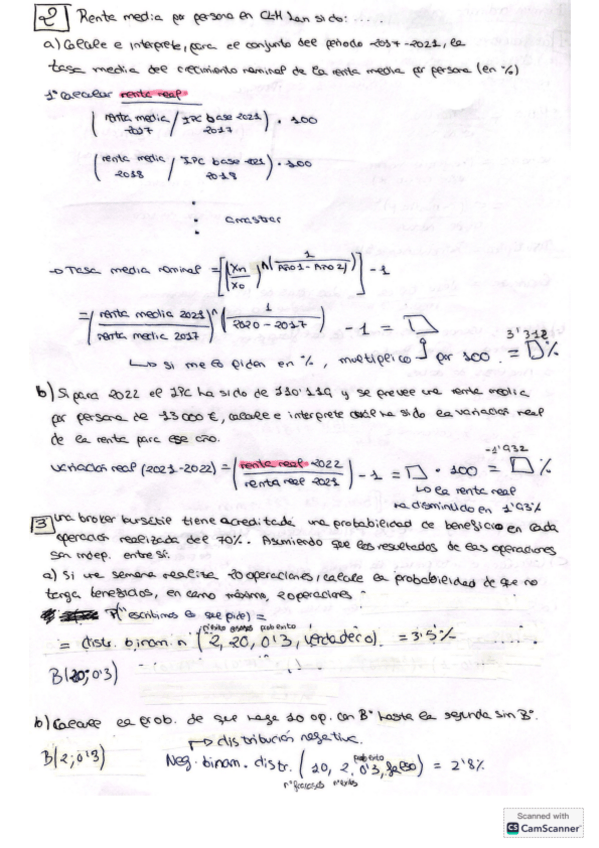 2 Renta media por persona en CLH han sido: ....
a) Calcule e interprete, para el conjunto del periodo 2017-2021, la
tasa media del crecimiento nominal de la renta media por persona (en %)
1º Calcular renta real
(renta media 2017 / IPC base 2021 2017) · 100
(renta media 2018 / IPC base 2021 2018) · 100
arrastrar
→ Tasa media nominal = [(Xn/X0)^(1/(Año1 - Año2))] - 1
= (renta media 2021 / renta media 2017)^(1/(2020-2017)) - 1 =
3'312
↳ si me lo piden en %, multiplico por 100 = %
b) Si para 2022 el IPC ha sido de 110'119 y se prevee una renta media
por persona de 13000 €, calcule e interprete cual ha sido la variación real
de la renta para ese año.
-1'932
Variación real (2021-2022) = (renta real 2022 / renta real 2021) - 1 = · 100 = %
↳ la renta real
ha disminuido en 1'93%
3 Una broker bursátil tiene acreditada una probabilidad de beneficio en cada
operación realizada del 70%. Asumiendo que los resultados de las operaciones
son indep. entre sí:
a) Si una semana realiza 20 operaciones, calcule la probabilidad de que no
tenga beneficios, en como máximo, 2 operaciones
P("escribimos lo que pide) =
= distr. binom. n (2, 20, 0'3, verdadero) = 3'5%
B(20; 0'3)
b) Calcule la prob. de que haga 10 op. con Bº hasta la segunda sin Bº.
↳ distribución negativa.
B(2; 0'3) Neg. binom. distr. (10, 2, 0'3, falso) = 2'8%
nº fracasos nº éxitos
Scanned with
CS CamScanner